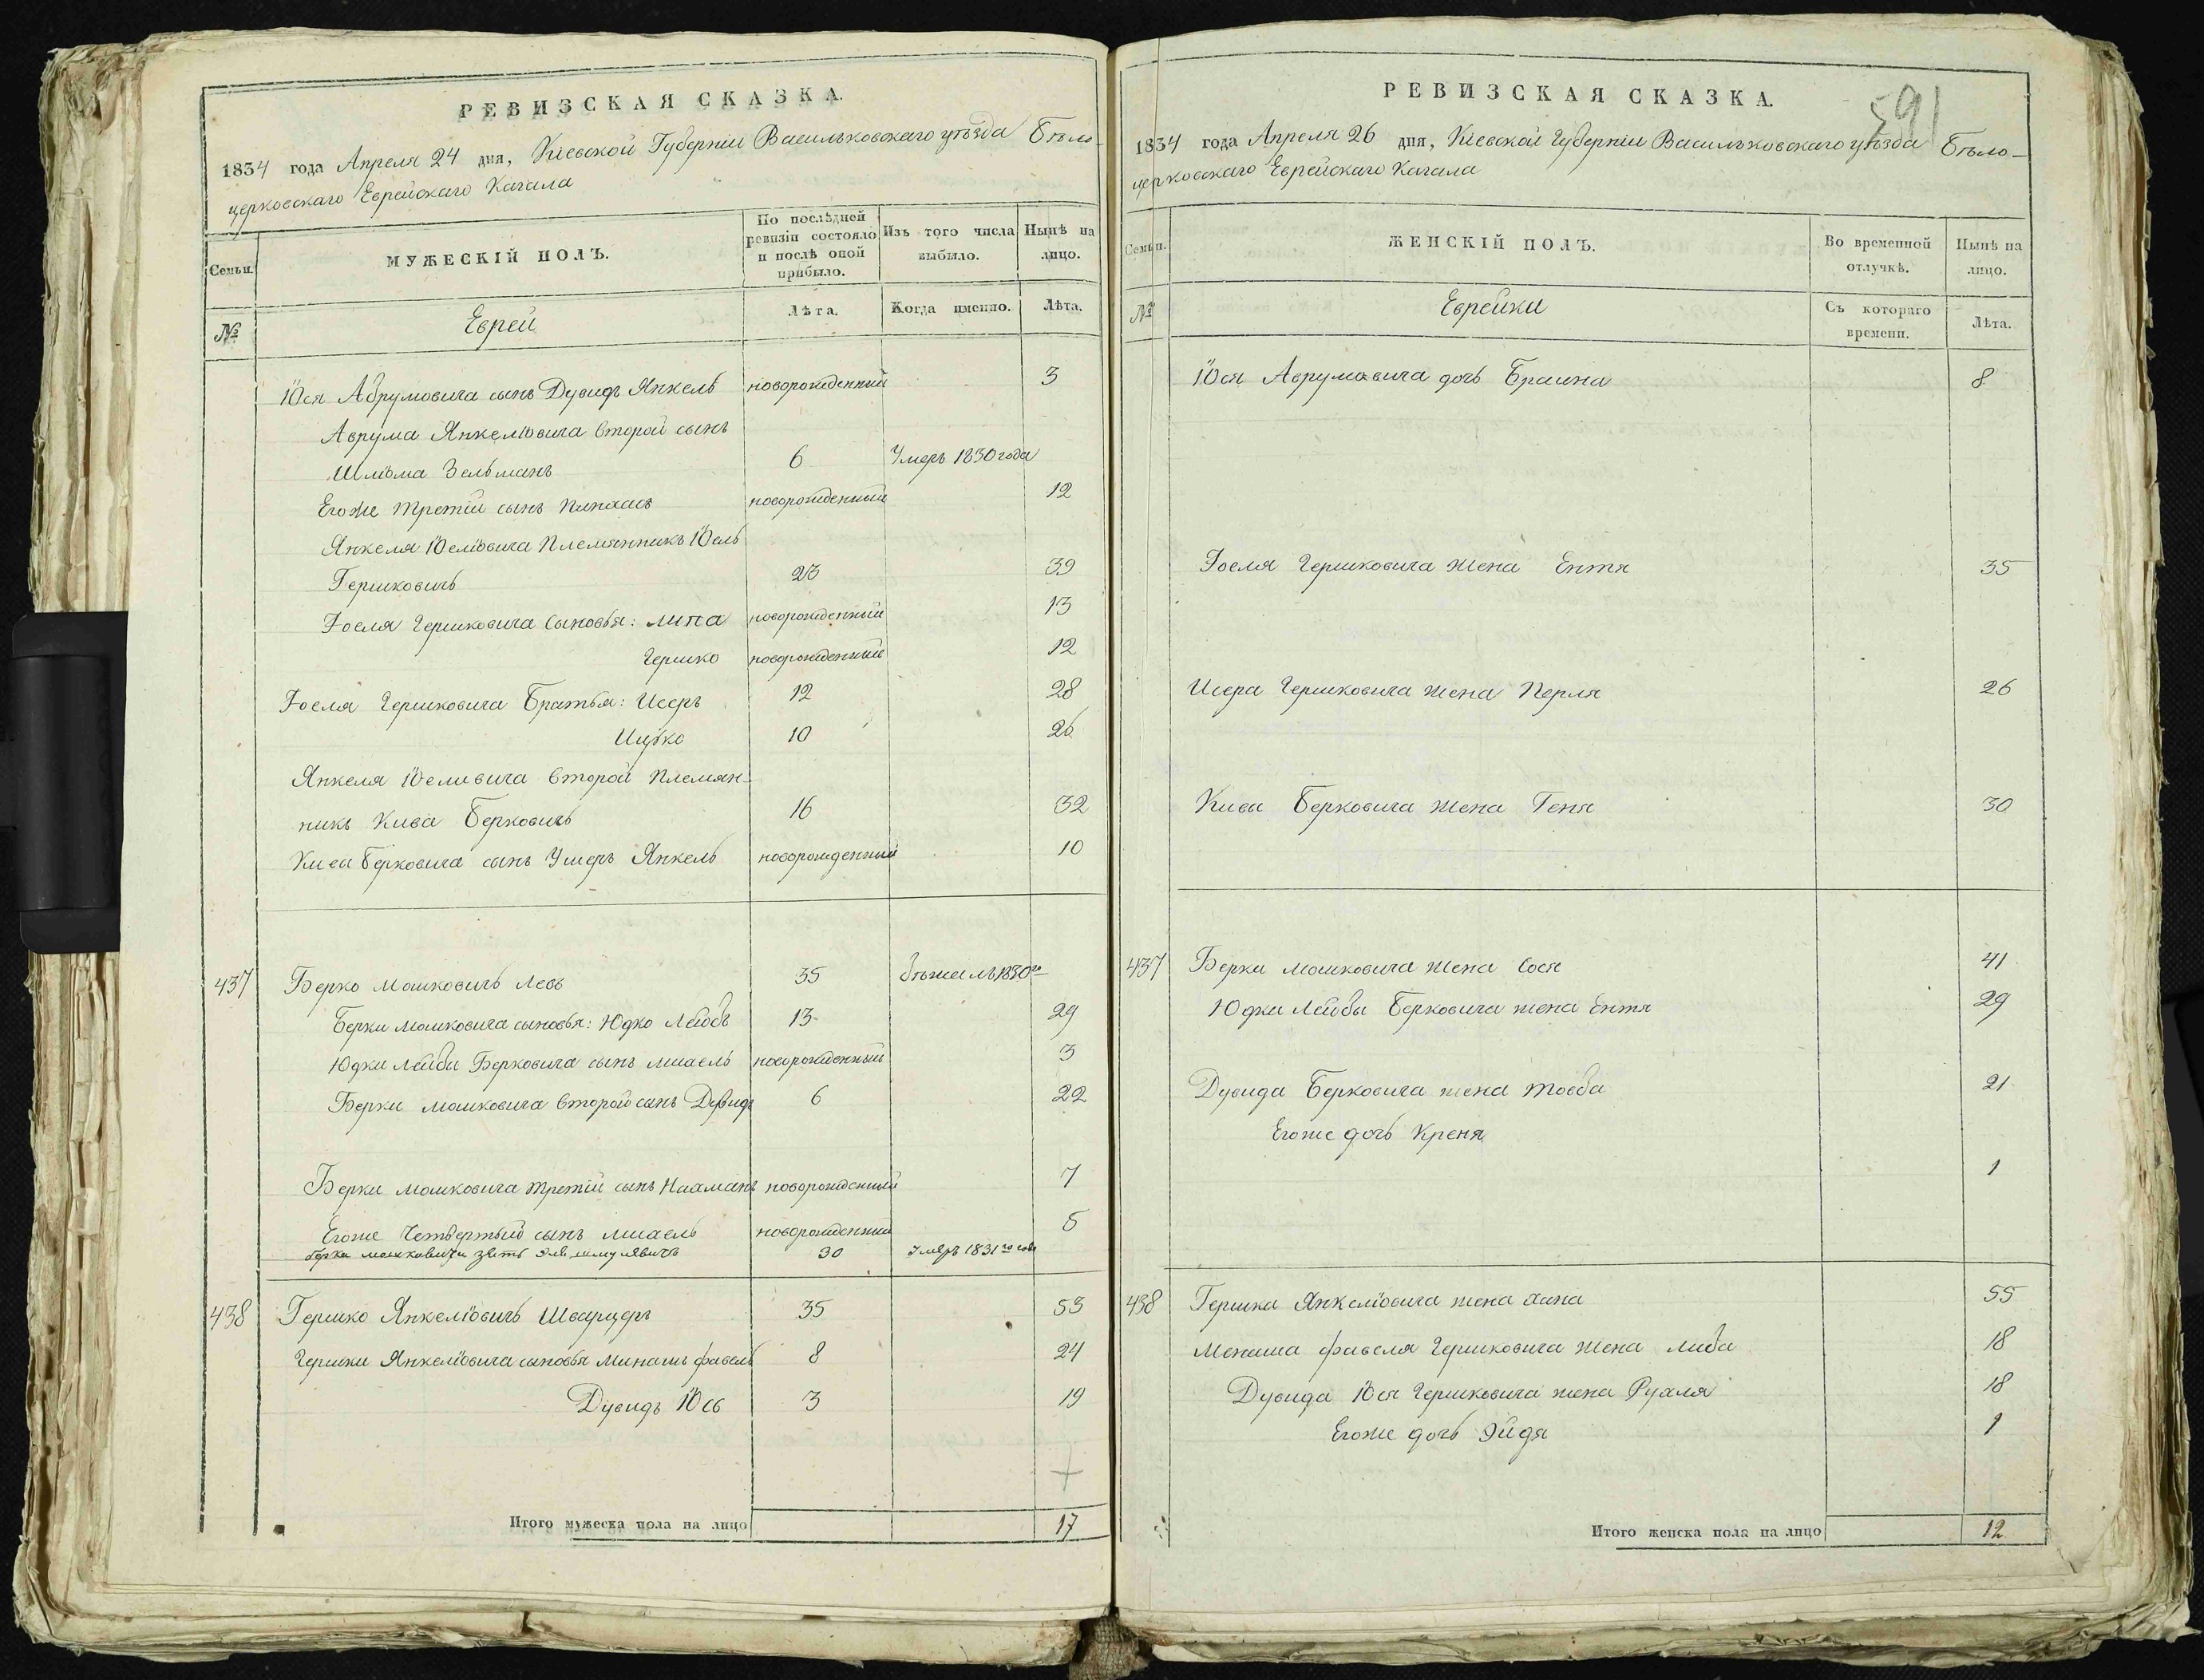 РЕВИЗСКАЯ СКАЗКА.
1834 года Апреля 24 дня, Кіевской Губерніи Васильковскаго уѣзда Бѣло-
церковскаго Еврейскаго Кагала
Семьи.
МУЖЕСКІЙ ПОЛЪ.
По послѣдней
ревизіи состояло
и послѣ оной
прибыло.
Изъ того числа
выбыло.
Нынѣ на
лицо.
№
Евреи
Лѣта.
Когда именно.
Лѣта.
Іося Абрумовича сынъ Дувидъ Янкель новорожденный 3
Аврума Янкеліовича второй сынъ
Шліома Зельманъ 6 Умеръ 1830 года
Егоже третій сынъ Пинхасъ новорожденный 12
Янкеля Іоеліовича Племянникъ Іоель
Гершковичъ 23 39
Іоеля Гершковича сыновья: Липа новорожденный 13
Гершко новорожденный 12
Іоеля Гершковича Братья: Исеръ 12 28
Ицко 10 26
Янкеля Іоелиовича второй Племян-
никъ Кива Берковичъ 16 32
Кивы Берковича сынъ Ушеръ Янкель новорожденный 10
437 Берко Мошковичъ Левъ 35 Бѣжалъ 1830го
Берки Мошковича сыновья: Юдко Лейбъ 13 29
Юдки Лейбы Берковича сынъ Мшаель новорожденный 3
Берки Мошковича второй сынъ Дувидъ 6 22
Берки Мошковича третій сынъ Нахманъ новорожденный 7
Егоже Четвертый сынъ Мшаель новорожденный 5
Берки Мошковича зять Эля Шмулявичъ 30 Умеръ 1831го года
438 Гершко Янкеліовичъ Шварцеръ 35 53
Гершки Янкеліовича сыновья Минашъ Фавель 8 24
Дувидъ Іось 3 19
Итого мужеска пола на лицо 17
591
РЕВИЗСКАЯ СКАЗКА.
1834 года Апреля 26 дня, Кіевской Губерніи Васильковскаго уѣзда Бѣло-
церковскаго Еврейскаго Кагала
Семьи.
ЖЕНСКІЙ ПОЛЪ.
Во временной
отлучкѣ.
Нынѣ на
лицо.
№
Еврейки
Съ котораго
времени.
Лѣта.
Іося Аврумовича дочь Браина 8
Іоеля Гершковича жена Ентя 35
Исера Гершковича жена Перля 26
Кивы Берковича жена Геня 30
437 Берки Мошковича жена Сося 41
Юдки Лейбы Берковича жена Ентя 29
Дувида Берковича жена Товба 21
Егоже дочь Креня
1
438 Гершки Янкеліовича жена Хана 55
Менаша Фавеля Гершковича жена Либа 18
Дувида Іося Гершковича жена Рухля 18
Егоже дочь Эйдя 1
Итого женска пола на лицо 12